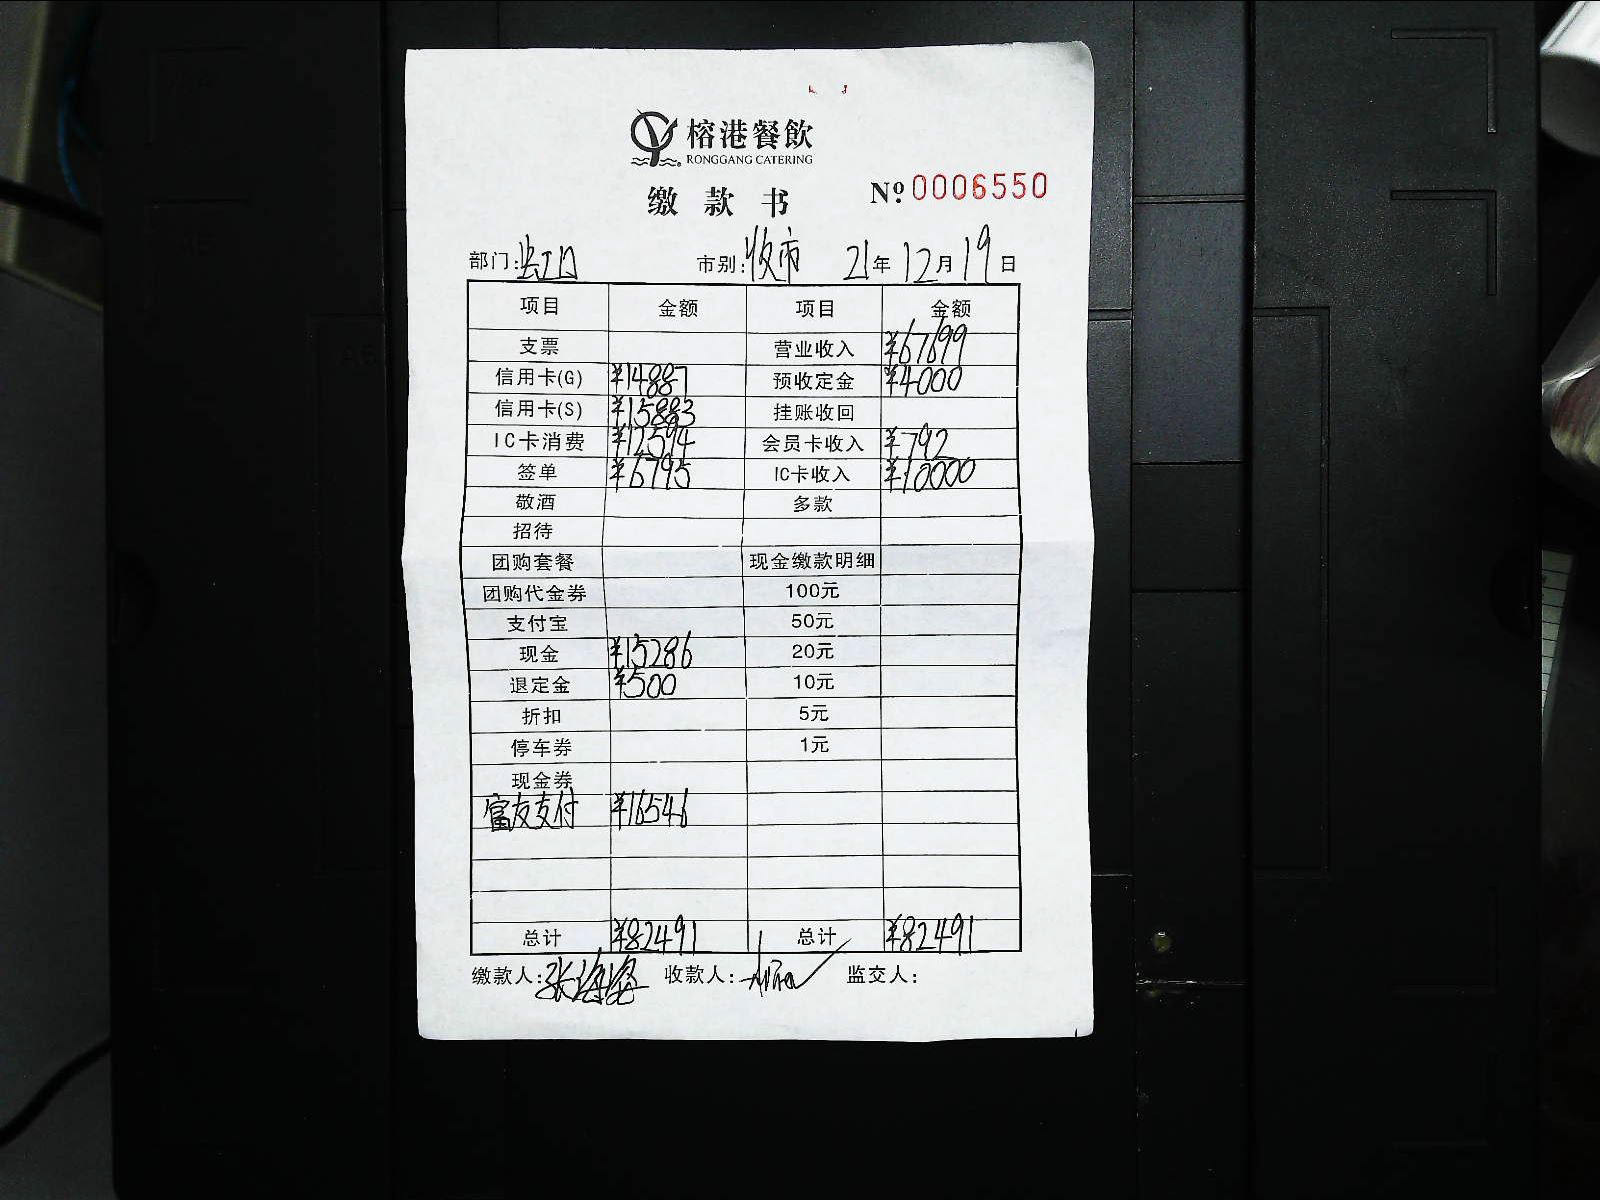 榕港餐飲
RONGGANG CATERING
缴款书 Nº 0006550
部门: 市别: 收市 21年12月19日
项目 金额 项目 金额
支票 营业收入 ¥67699
信用卡(G) ¥14887 预收定金 ¥4000
信用卡(S) ¥15883 挂账收回
IC卡消费 ¥12594 会员卡收入 ¥792
签单 ¥6795 IC卡收入 ¥10000
敬酒 多款
招待
团购套餐 现金缴款明细
团购代金券 100元
支付宝 50元
现金 ¥15286 20元
退定金 ¥500 10元
折扣 5元
停车券 1元
现金券
富友支付 ¥16546
总计 ¥82491 总计 ¥82491
缴款人: 张海 收款人: 监交人: